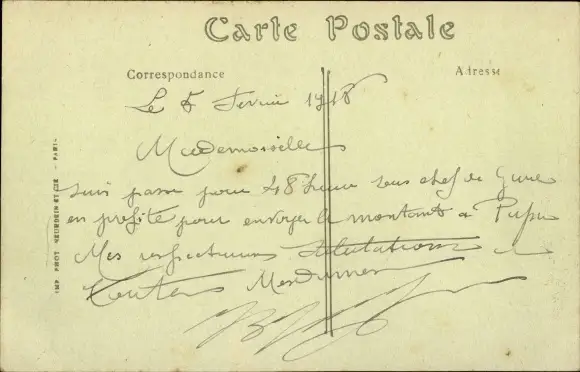 Carte Postale
Correspondance
Adresse
Le 5 Fevrier 1918
Mademoiselle
suis passe pour 48 heure sous chef de Gare
en profite pour envoyer le montant a Papa
Mes respectueuses salutations a
toutes Mesdames
IMP. PHOT. NEURDEIN ET CIE. - PARIS